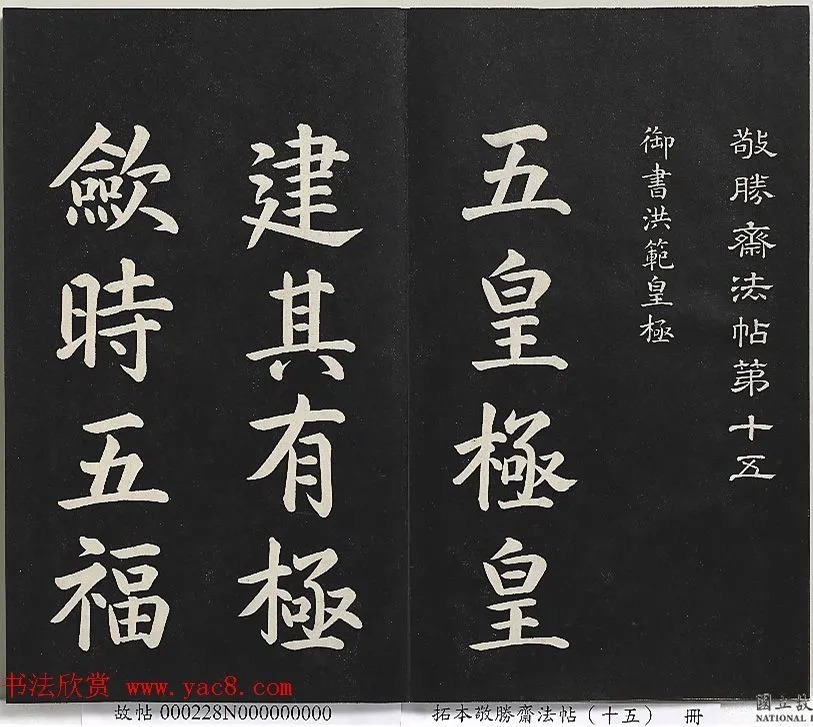 敬勝齋法帖第十五
御書洪範皇極
五皇極皇
建其有極
歛時五福
书法欣赏 www.yac8.com
故帖000228N000000000
拓本敬勝齋法帖（十五） 冊
國立故
NATIONAL